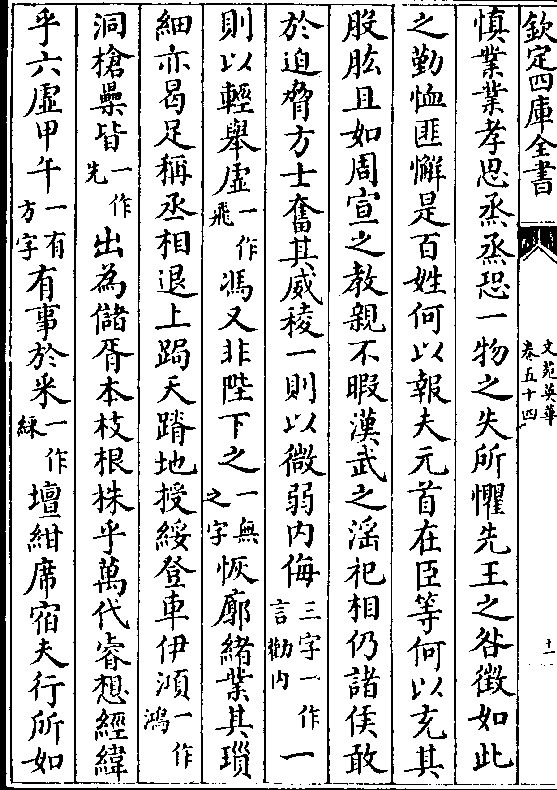 欽定四庫全書
文苑英華
卷五十四
十二
慎業業孝思烝烝恐一物之失所懼先王之咎徵如此
之勤恤匪懈是百姓何以報夫元首在臣等何以充其
股肱且如周宣之教親不暇漢武之淫祀相仍諸侯敢
於迫脅方士奮其威稜一則以微弱内侮三字一作言勸内一
則以輕舉虚一作飛馮又非陛下之一無之字恢廓緒業其瑣
細亦曷足稱丞相退上跼天蹐地授綏登車伊澒一作鴻
洞槍櫐皆一作先出為儲胥本枝根株乎萬代睿想經緯
乎六虚甲午一有方字有事於采一作綵壇紺席宿夫行所如